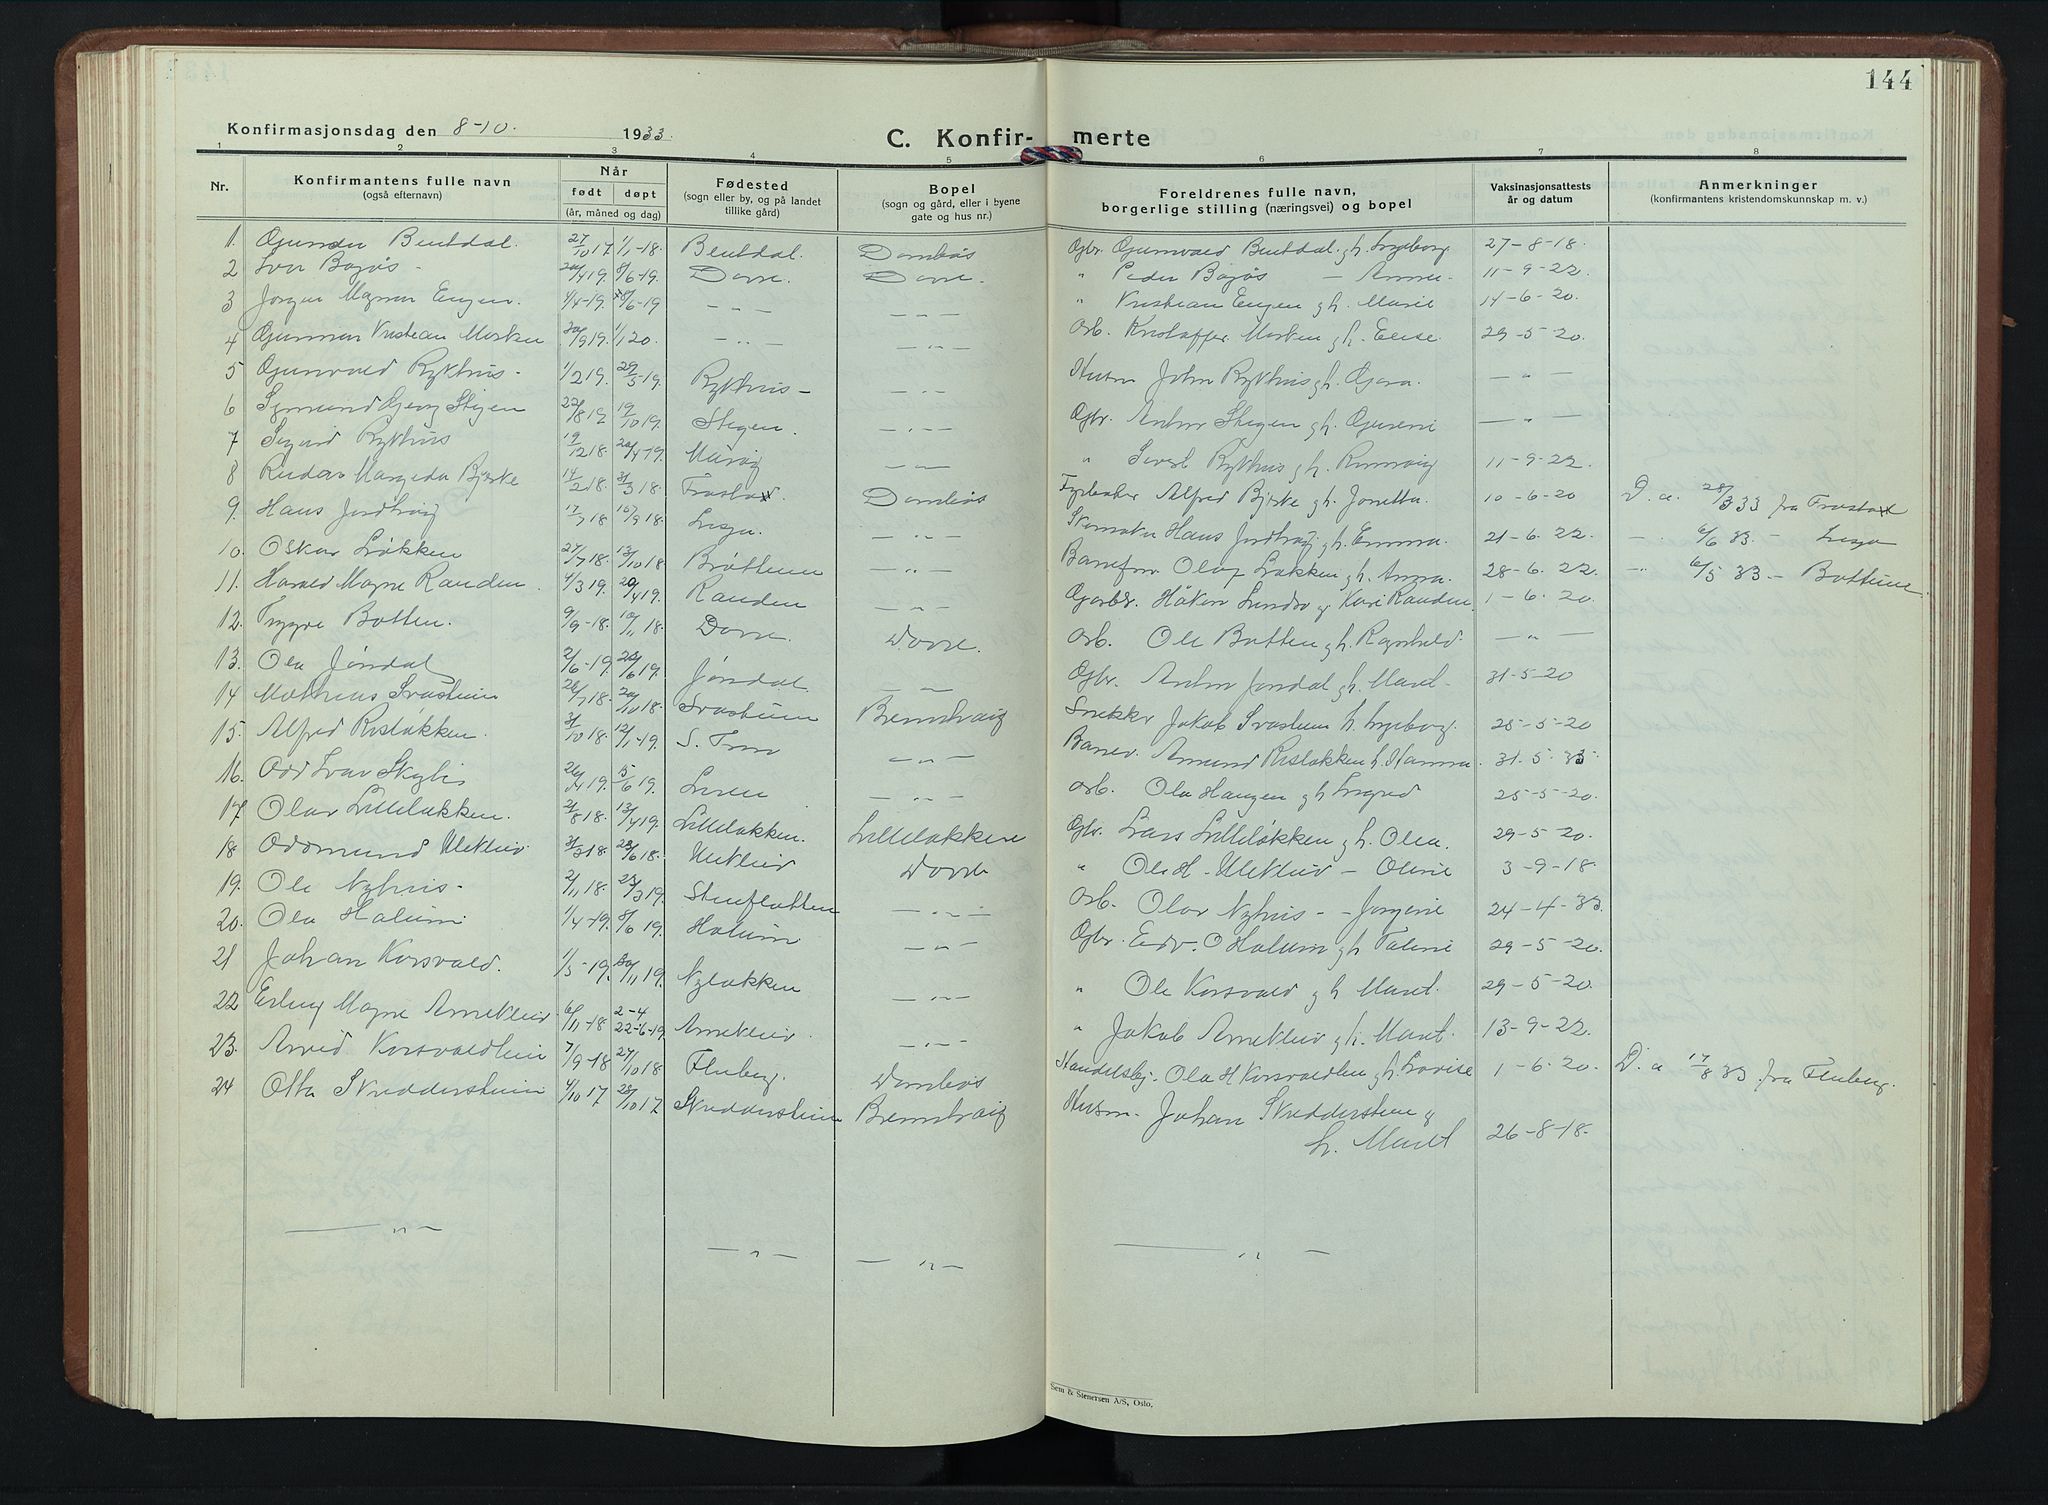 144
Konfirmasjonsdag den 8-10. 1933.
C. Konfir- merte
1 2 3 4 5 6 7 8
Nr. Konfirmantens fulle navn (også efternavn) Når født døpt (år, måned og dag) Fødested (sogn eller by, og på landet tillike gård) Bopel (sogn og gård, eller i byene gate og hus nr.) Foreldrenes fulle navn, borgerlige stilling (næringsvei) og bopel Vaksinasjonsattests år og datum Anmerkninger (konfirmantens kristendomskunnskap m. v.)
1. Gunder Bentdal. 27/10 17 1/1-18. Bentdal. Dombås Gbr. Gunvald Bentdal g. h. Ingeborg 27-8-18.
2 Ivar Bøjøs - 20/4 19. 8/6-19. Dovre. Dovre. " Peder Bøjøs — Anne- 11-9-22.
3 Jørgen Magnar Engen. 4/4-19. 8/6-19 - " - - " - " Kristian Engen g h. Marie 14-6-20.
4 Gunnar Kristian Morken 20/9 19. 1/1 20. - " - - " - Arb. Kristoffer Morken g h. Elise. 29-5-20.
5 Gunvald Rykhus - 1/2 19. 29/5-19. Rykhus - - " - Husm John Rykhus g h. Gjøra. — " —
6 Sigmund Georg Stigen 22/8 19 19/10 19. Stigen. - " - Gbr. Anton Stigen g h. Gurine — " —
7 Sigurd Rykhus 19/12 18. 20/4-19. - " - " Sivert Rykhus g h. Rønnaug 11-9-22.
8 Reidar Margido Bjerke 14/2 18. 31/3 18. Dombås Alfred Bjerke g h. Jonetta. 10-6-20 D. a. 28/3 33 fra
9. Hans Jordhøy 17/7 18 15/9 18. Lesja. - " - Skomaker Hans Jordhøy g h. Emma. 21-6. 22. - " 6/6 33. - Lesja
10. Oskar Løkken 27/7 18. 13/10 18 Brøttum - " - Olaf Løkken g h. Anna. 28-6. 22. - " 6/5 33 - Bøttum.
11. Harald Magne Randen. 4/3 19. 20/4 19. Randen - " - Håkon Lundby g Kari Randen 1-6. 20.
12. Trygve Botten. 9/9-18. 10/11 18. Dovre. Dovre. Arb. Ole Botten g h. Ragnhild. — " —
13. Ola Jøndal 2/6-19. 22/6 19. Jøndal - " - Gbr. Anton Jøndal g h. Marit - 31-5-20
14 Mathias Svastuen 26/7 18. 20/10 18. Svastuen Brennhaug Snekker Jakob Svastuen h. Ingeborg. 25-5-20
15. Alfred Risløkken. 31/10 18. 12/1-19. S. Fron - " - Amund Risløkken h. Hanna. 31. 5. 33
16. Odd Ivar Skylis 26/4 19. 15/6 19. - " - Arb. Ola Haugen g h Ingrid 25-5-20.
17 Olav Lilleløkken. 2/8 18. 13/4 19. Lilleløkken. Lilleløkken Gbr. Lars Lilleløkken g h. Olea. 29-5. 20.
18 Oddmund Ulekleiv. 31/3 18. 23/6 18. Ulekleiv Dovre " Ole H. Ulekleiv — Oline 3-9-18.
19. Ole Nyhus - 2/11 18. 23/3 19. Stenflatten - " - Arb. Olav Nyhus - - Jørgine 24-4-33.
20. Ola Halum 1/4-19. 8/6 19. Halum - " - Gbr. Edv. O Halum g h Taline 29-5-20.
21 Johan Korsvald. 1/5-19. 30/11 19. Nyløkken - " - " Ole Korsvald g h. Marit. 29-5-20.
22 Erling Magne Arnekleiv 6/11-18 2-4 22-6-19. Arnekleiv. - " - " Jakob Arnekleiv g h. Marit. 13-9-22.
23. Arvid Korsvaldlien 7/9-18 27/10 18 Fluberg. Dombås Handelsbj. Ola H Korsvaldlien g h. Lovise 1-6. 20. D. a 17/8 33 fra Fluberg.
24 Otto Skredderstuen 4/10 17 28/10 17 Skredderstuen Brennhaug Husm. Johan Skredderstuen g
h. Marit 26-8-18.
— " — — " — — " — — " —
Sem & Stenersen A/S, Oslo.